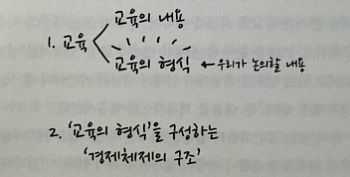 교육의 내용
1. 교육
교육의 형식 ← 우리가 논의할 내용
2. '교육의 형식'을 구성하는
'경제체제의 구조'